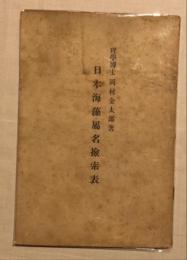 理學博士 岡村金太郎著
日本海藻屬名撿索表